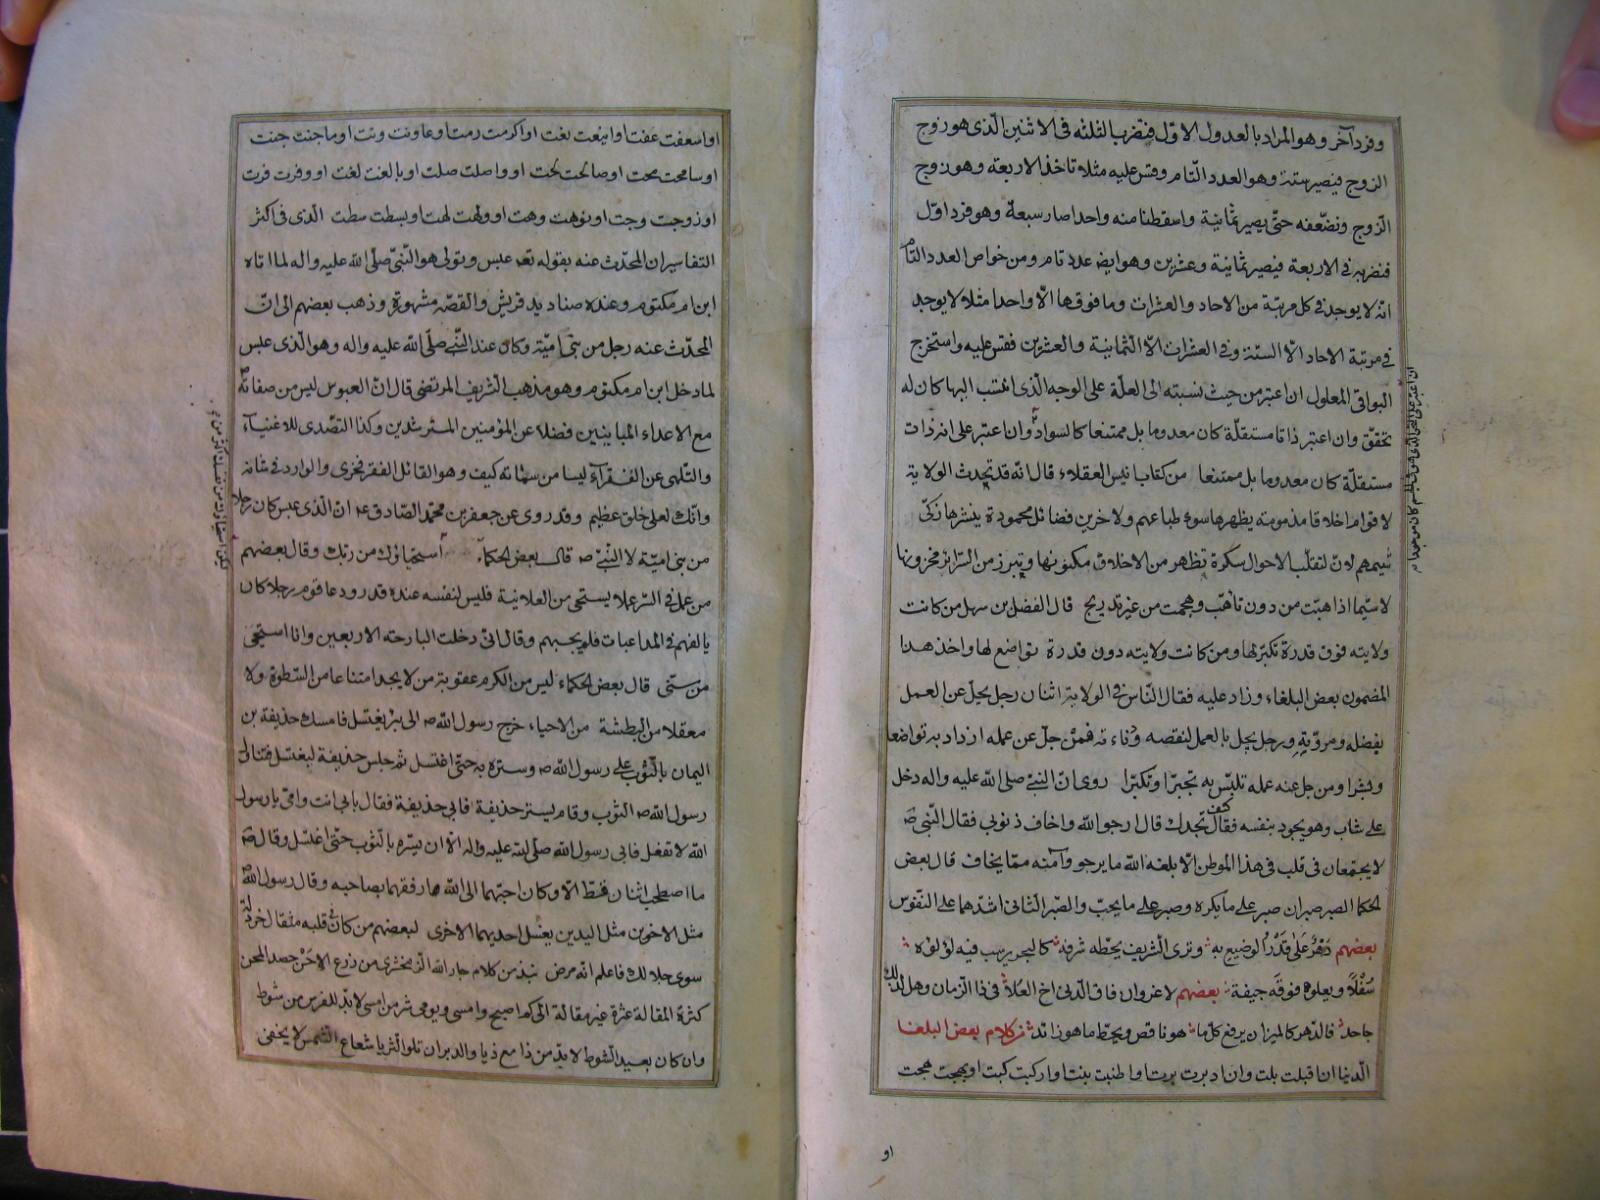 وفرد آخر وهو المراد بالعدد الاول فتضرب الثلثه فى الاثنين الذى هو زوج
الزوج فيصير ستة وهو العدد التام وقس عليه مثلا تاخذ الاربعة وهو زوج
الزوج ونضعفه حتى يصير ثمانية واسقطنا منه واحدا صار سبعة وهو فرد اول
فنضربه فى الاربعة فيصير ثمانية وعشرين وهو ايض عدد تام ومن خواص العدد التام
انه لا يوجد فى كل مرتبة من الاحاد والعشرات وما فوقها الا واحدا مثلا لا يوجد
فى مرتبة الاحاد الا الستة وفى العشرات الا الثمانية والعشرين فقس عليه واستخرج
البواقى المعلول ان اعتبر من حيث نسبته الى العلة على الوجه الذى انتسب اليها كان له
تحقق وان اعتبر ذاتا مستقلة كان معدوما بل ممتنعا كالسواد وان اعتبر على انه ذات
مستقلة كان معدوما بل ممتنعا من كتاب انيس العقلاء قال انه قد تحدث الولاية
لاقوام اخلاقا مذمومة يظهرها سوء طباعهم ولاخرين فضائل محمودة ينشرها زكى
شيمهم لان لتقلب الاحوال سكرة تظهر من الاخلاق مكنونها وتبرز من السرائر مخزونها
لاسيما اذا هبت من دون تأهب وهجمت من غير تدريج قال الفضل بن سهل من كانت
ولايته فوق قدرة تكبر لها ومن كانت ولايته دون قدرة تواضع لها واخذ هذا
المضمون بعض البلغاء وزاد عليه فقال الناس فى الولاية اثنان رجل يجل عن العمل
بفضله ومروته ورجل يجل بالعمل لنقصه ودناءته فمن جل عن عمله ازداد به تواضعا
وبشرا ومن جل عنه عمله تلبس به تجبرا وتكبرا روى ان النبى صلى الله عليه واله دخل
على شاب وهو يجود بنفسه فقال كيف تجدك قال ارجو الله واخاف ذنوبى فقال النبى ص
لا يجتمعان فى قلب فى هذا الموطن الا بلغه الله ما يرجو وآمنه مما يخاف قال بعض
الحكما الصبر صبران صبر على ما يكره وصبر على ما يحب والصبر الثانى اشدهما على النفوس
بعضهم دهر علا قدر الوضيع به وترى الشريف يحطه شرفه كالبحر يرسب فيه لؤلؤه
سفلا ويعلوه فوقه جيفة بعضهم لا غروان فاق الدنى اخ العلا فى ذا الزمان وهل لذلك
جاحد فالدهر كالميزان يرفع كل ما هو ناقص ويحط ما هو زائد من كلام بعض البلغا
الدنيا ان اقبلت بلت وان ادبرت برت واطنبت بنت او اركبت كبت او بهجت هجت
او
ان اعتبر على النحو الذى هو فى الجسم كان موجودا
او اسعفت عفت او اينعت نعت او اكرمت رمت او عاونت ونت او ماجنت جنت
او سامحت محت او صالحت لحت او واصلت صلت او بالغت لغت او وفرت فرت
او زوجت وجت او نوهت وهت او ولهت لهت او بسطت سطت الذى فى اكثر
التفاسير ان المحدث عنه بقوله تعه عبس وتولى هو النبى صلى الله عليه واله لما اتاه
ابن ام مكتوم وعنده صناديد قريش والقصه مشهورة وذهب بعضهم الى ان
المحدث عنه رجل من بنى امية وكان عند النبى صلى الله عليه واله وهو الذى عبس
لما دخل ابن ام مكتوم وهو مذهب الشريف المرتضى قال ان العبوس ليس من صفاته ص
مع الاعداء المباينين فضلا عن المؤمنين المسترشدين وكذا التصدى للاغنياء
والتلهى عن الفقراء ليسا من سماته كيف وهو القائل الفقر فخرى والوارد فى شانه
وانك لعلى خلق عظيم وقد روى عن جعفر بن محمد الصادق ع ان الذى عبس كان رجلا
من بنى امية لا النبى ص قال بعض الحكماء من ربك وقال بعضهم
من عمل فى السر عملا يستحى من العلانية فليس لنفسه عنده قدر ودعا قوم رجلا كان
يالفهم فى المداعبات فلم يجبهم وقال انى دخلت البارحة الاربعين وانا استحى
من سنى قال بعض الحكماء ليس من الكرم عقوبة من لا يجد امتناعا من السطوة ولا
معقلا من البطشة من الاحياء خرج رسول الله ص الى بئر يغتسل فامسك حذيفة بن
اليمان بالثوب على رسول الله ص وستره به حتى اغتسل ثم جلس حذيفة ليغتسل فتناول
رسول الله ص الثوب وقام يستر حذيفة فابى حذيفة فقال بابى انت وامى يا رسول
الله لا تفعل فابى رسول الله صلى الله عليه واله الا ان يستره بالثوب حتى اغتسل وقال ص
ما اصطحب اثنان قط الا وكان احبهما الى الله ارفقهما بصاحبه وقال رسول الله ص
مثل الاخوين مثل اليدين يغسل احديهما الاخرى لبعضهم من كان فى قلبه مثقال خردلة
سوى جلالك فاعلم انه مرض نبذ من كلام جار الله الزمخشرى من زرع الاحن حصد المحن
كثرة المقالة عثرة غير مقالة الى كم اصبح وامسى ويومى شر من امسى لابد للفرس من سوط
وان كان بعيد الشوط لابد من ذا مع ذيا والدبران تلو الثريا شعاع الشمس لا يخفى